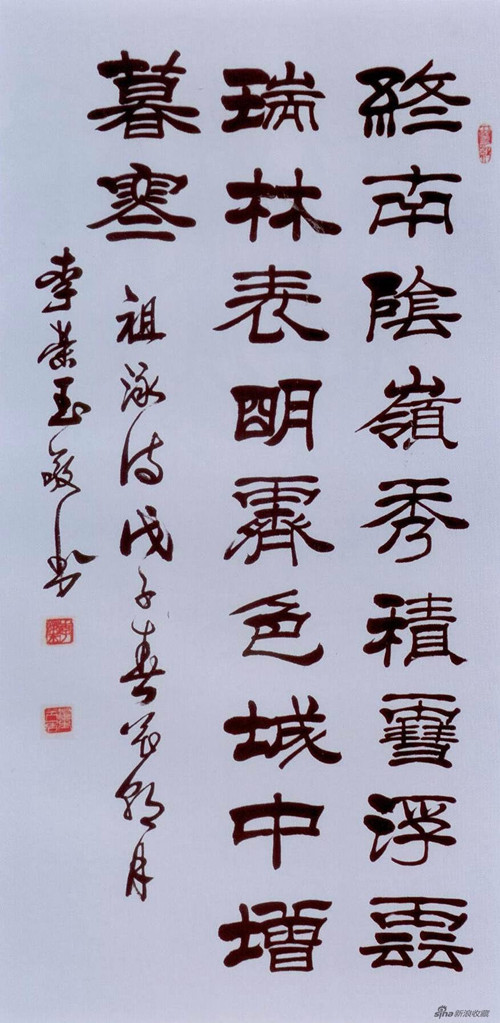 終南陰嶺秀積雪浮雲
瑞林表明霽色城中增
暮寒 祖詠詩戊子春花朝月
李荣玉敬书
sina新浪收藏